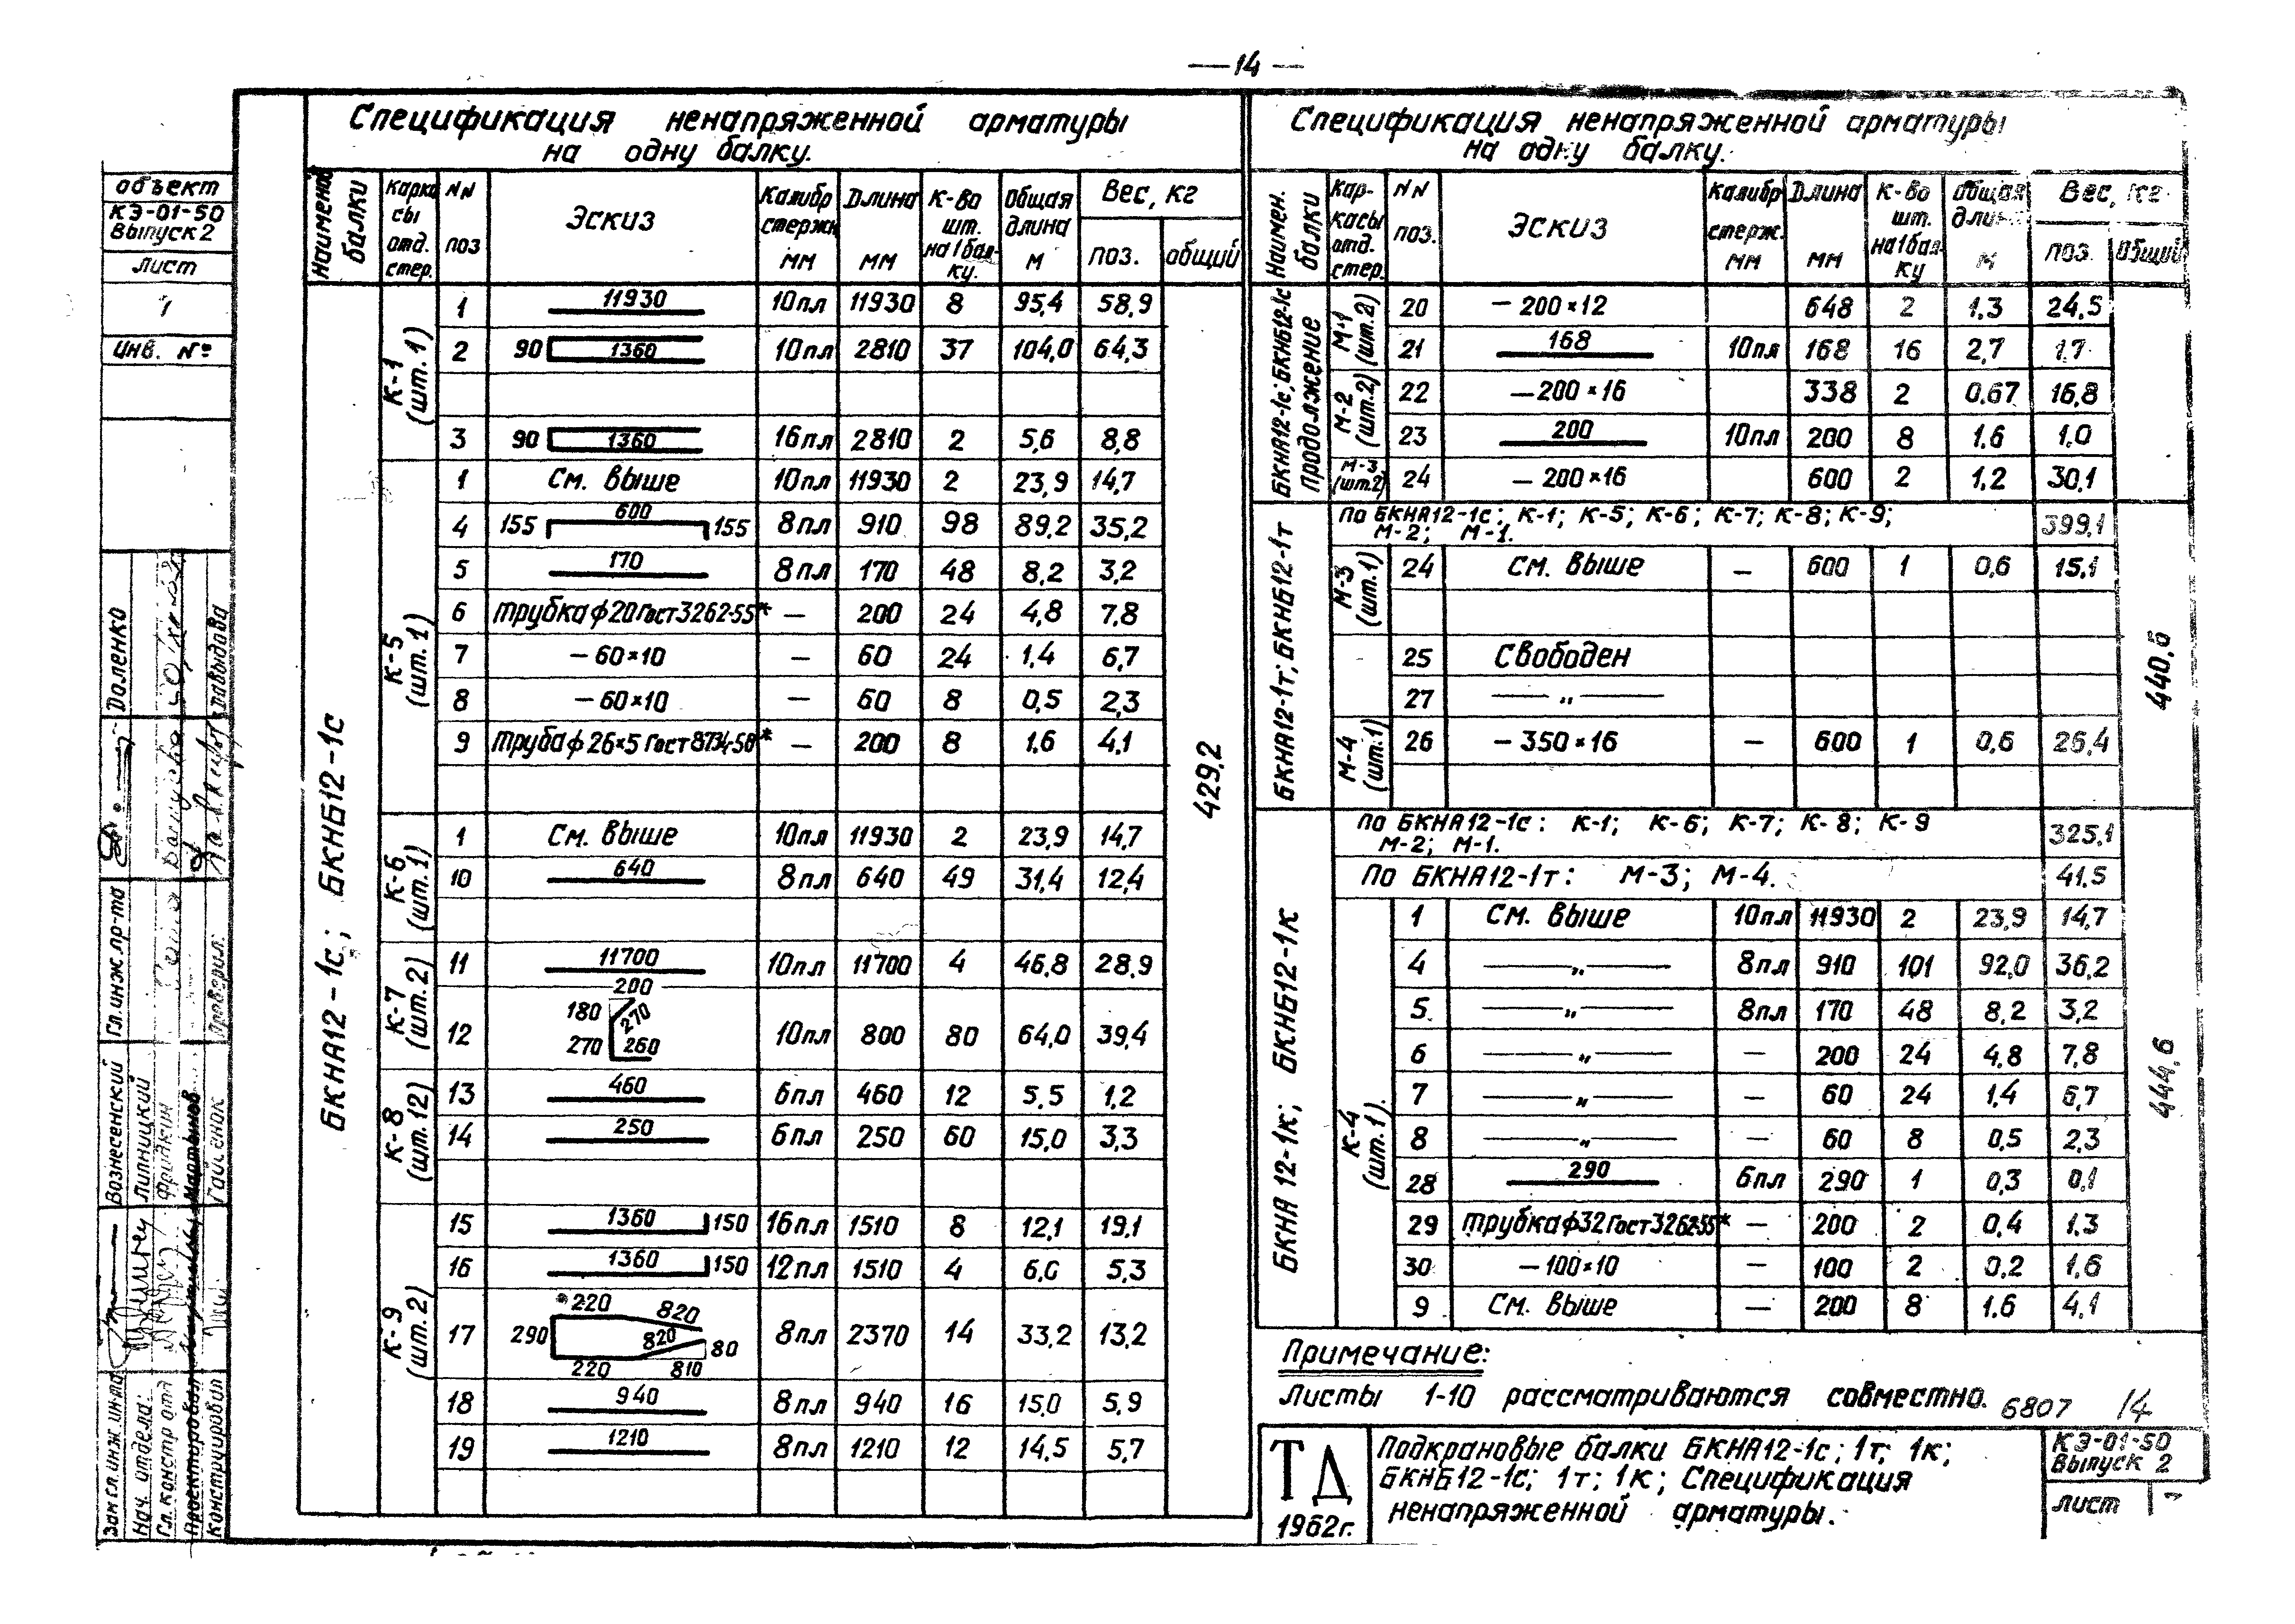 — 14 —
Спецификация ненапряженной арматуры
на одну балку.
Наименов. балки | Каркасы отд. стер. | NN поз | Эскиз | Калибр стержн мм | Длина мм | К-во шт. на 1 балку. | Общая длина м | Вес, кг поз. | общий
БКНА12-1с; БКНБ12-1с
429,2
К-1 (шт. 1)
1 11930 10пл 11930 8 95,4 58,9
2 90 1360 10пл 2810 37 104,0 64,3
3 90 1360 16пл 2810 2 5,6 8,8
К-5 (шт. 1)
1 См. выше 10пл 11930 2 23,9 14,7
4 155 600 155 8пл 910 98 89,2 35,2
5 170 8пл 170 48 8,2 3,2
6 Трубка ф20 Гост 3262-55* — 200 24 4,8 7,8
7 — 60×10 — 60 24 1,4 6,7
8 — 60×10 — 60 8 0,5 2,3
9 Труба ф 26×5 Гост 8734-58* — 200 8 1.6 4,1
К-6 (шт. 1)
1 См. выше 10пл 11930 2 23,9 14,7
10 640 8пл 640 49 31,4 12,4
К-7 (шт. 2)
11 11700 10пл 11700 4 46,8 28,9
12 200 180 270 270 260 10пл 800 80 64,0 39,4
К-8 (шт. 12)
13 460 6пл 460 12 5,5 1,2
14 250 6пл 250 60 15,0 3,3
К-9 (шт. 2)
15 1360 150 16пл 1510 8 12,1 19,1
16 1360 150 12пл 1510 4 6,0 5,3
17 220 820 290 820 80 220 810 8пл 2370 14 33,2 13,2
18 940 8пл 940 16 15,0 5,9
19 1210 8пл 1210 12 14,5 5,7
Спецификация ненапряженной арматуры
на одну балку.
Наимен. балки | Каркасы отд. стер. | NN поз. | Эскиз | Калибр стерж. мм | Длина мм | К-во шт. на 1 балку | Общая длина м | Вес, кг поз. | общий
БКНА12-1с; БКНБ12-1с
продолжение
М-1 (шт. 2)
20 — 200×12 648 2 1,3 24,5
21 168 10пл 168 16 2,7 1,7
М-2 (шт. 2)
22 — 200×16 338 2 0,67 16,8
23 200 10пл 200 8 1.6 1.0
М-3 (шт. 2)
24 — 200×16 600 2 1,2 30,1
БКНА12-1т; БКНБ12-1т
440,6
По БКНА12-1с: К-1; К-5; К-6; К-7; К-8; К-9;
М-2; М-1. 399,1
М-3 (шт. 1)
24 См. выше — 600 1 0,6 15,1
25 Свободен
27 — „ —
М-4 (шт. 1)
26 — 350×16 — 600 1 0,6 26,4
БКНА 12-1к; БКНБ12-1к
444,6
По БКНА12-1с: К-1; К-6; К-7; К-8; К-9
М-2; М-1. 325,1
По БКНА12-1т: М-3; М-4. 41,5
К-4 (шт. 1).
1 См. выше 10пл 11930 2 23,9 14,7
4 — „ — 8пл 910 101 92,0 36,2
5 — „ — 8пл 170 48 8,2 3,2
6 — „ — — 200 24 4,8 7,8
7 — „ — — 60 24 1,4 6,7
8 — „ — — 60 8 0,5 2,3
28 290 6пл 290 1 0,3 0,1
29 Трубка ф32 Гост 3262-55* — 200 2 0,4 1,3
30 — 100×10 — 100 2 0,2 1,6
9 См. выше — 200 8 1.6 4,1
Примечание:
Листы 1-10 рассматриваются совместно.
6807 14
ТД
1962г.
Подкрановые балки БКНА12-1с; 1т; 1к;
БКНБ12-1с; 1т; 1к; Спецификация
ненапряженной арматуры.
КЭ-01-50
Выпуск 2
лист
объект
КЭ-01-50
Выпуск 2
Лист
Инв. №
Зам гл. инж. ин-та Вознесенский
Нач. отдела. Липницкий
Гл. констр отд Фридкин
Проектировал Мартынов
Конструировал Гайсенок
Гл. инж. пр-та Даленко
Проверил. Давыдова